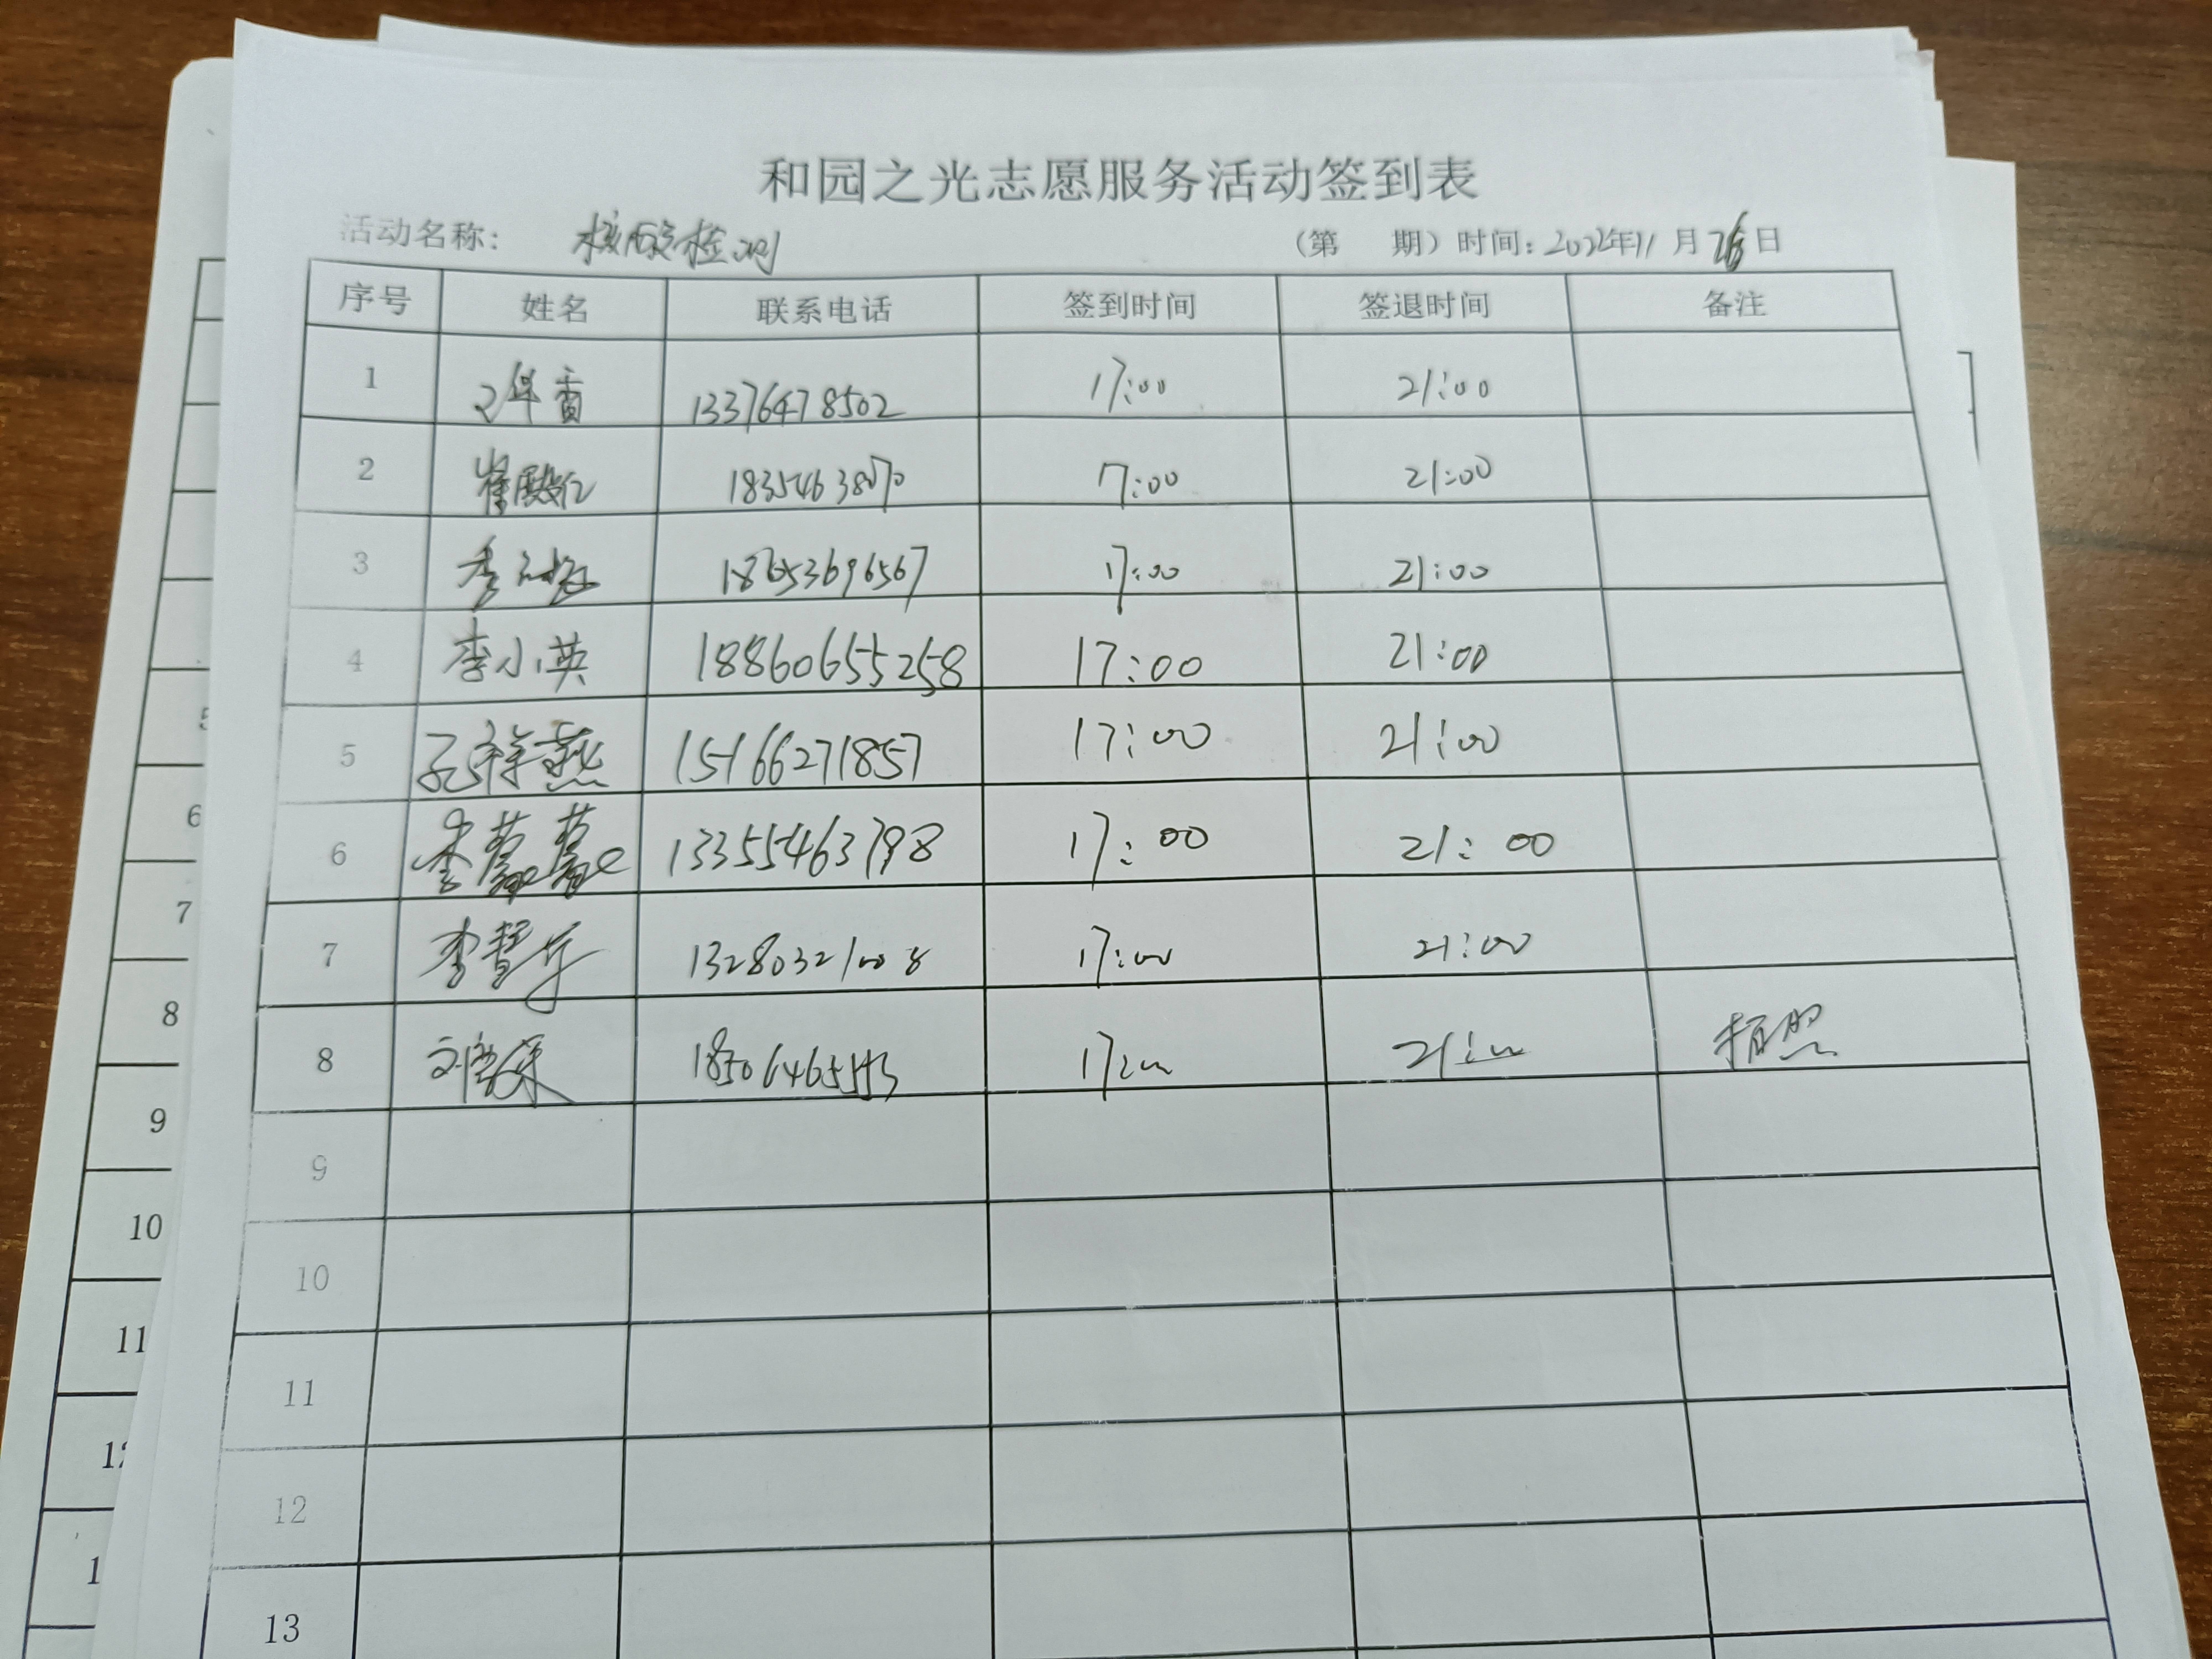 和园之光志愿服务活动签到表
活动名称： 核酸检测 （第 期）时间：2022年11月 日
序号 姓名 联系电话 签到时间 签退时间 备注
1 13376478502 17:00 21:00
2 17:00 21:00
3 18653696567 17:00 21:00
4 李小英 18860655258 17:00 21:00
5 孔祥燕 15166271857 17:00 21:00
6 李蒙蒙 13355463798 17:00 21:00
7 13280321008 17:00 21:00
8 17:00 21:00 拍照
9
10
11
12
13
5
6
7
8
9
10
11